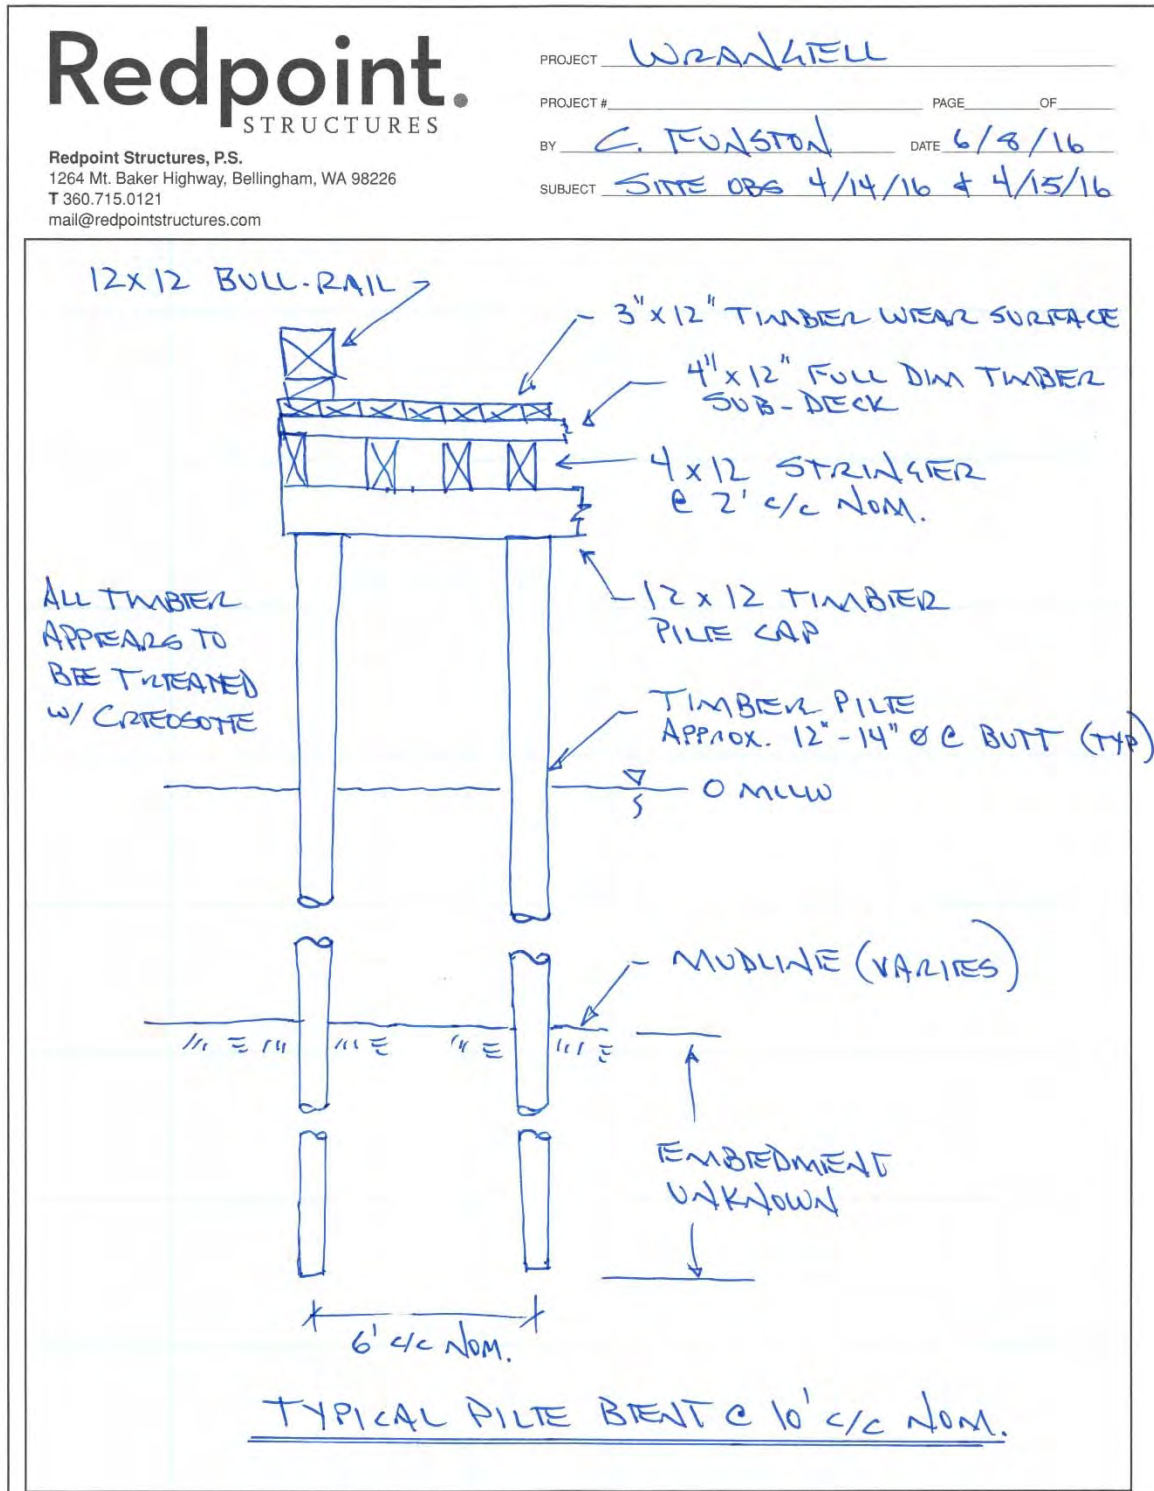 Redpoint.
STRUCTURES
Redpoint Structures, P.S.
1264 Mt. Baker Highway, Bellingham, WA 98226
T 360.715.0121
mail@redpointstructures.com
PROJECT WRANGELL
PROJECT # PAGE OF
BY C. FUNSTON DATE 6/8/16
SUBJECT SITE OBS 4/14/16 & 4/15/16
12x12 BULL-RAIL
3"x12" TIMBER WEAR SURFACE
4"x12" FULL DIM TIMBER
SUB-DECK
4x12 STRINGER
@ 2' c/c NOM.
12x12 TIMBER
PILE CAP
ALL TIMBER
APPEARS TO
BE TREATED
W/ CREOSOTE
TIMBER PILE
APPROX. 12"-14" Ø @ BUTT (TYP)
0 MLLW
MUDLINE (VARIES)
EMBEDMENT
UNKNOWN
6' c/c NOM.
TYPICAL PILE BENT @ 10' c/c NOM.